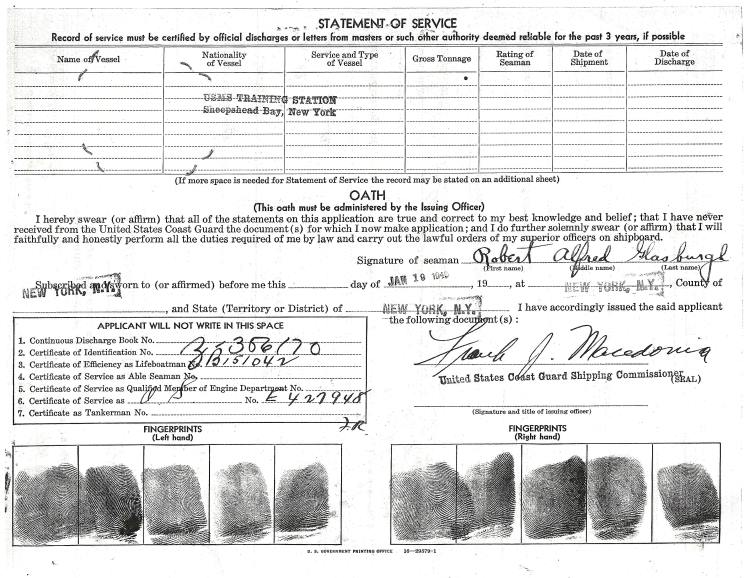 STATEMENT OF SERVICE
Record of service must be certified by official discharges or letters from masters or such other authority deemed reliable for the past 3 years, if possible
Name of Vessel
Nationality of Vessel
Service and Type of Vessel
Gross Tonnage
Rating of Seaman
Date of Shipment
Date of Discharge
USMS TRAINING STATION
Sheepshead Bay, New York
(If more space is needed for Statement of Service the record may be stated on an additional sheet)
OATH
(This oath must be administered by the Issuing Officer)
I hereby swear (or affirm) that all of the statements on this application are true and correct to my best knowledge and belief; that I have never
received from the United States Coast Guard the document(s) for which I now make application; and I do further solemnly swear (or affirm) that I will
faithfully and honestly perform all the duties required of me by law and carry out the lawful orders of my superior officers on shipboard.
Signature of seaman Robert Alfred Glasburgh
(First name) (Middle name) (Last name)
Subscribed and sworn to (or affirmed) before me this day of JAN 19, 19, at NEW YORK, N.Y., County of
NEW YORK, N.Y., and State (Territory or District) of NEW YORK, N.Y. I have accordingly issued the said applicant
the following document(s):
APPLICANT WILL NOT WRITE IN THIS SPACE
1. Continuous Discharge Book No.
2. Certificate of Identification No.
3. Certificate of Efficiency as Lifeboatman
4. Certificate of Service as Able Seaman No.
5. Certificate of Service as Qualified Member of Engine Department No.
6. Certificate of Service as No. E 427948
7. Certificate as Tankerman No.
Frank J. Macedonia
United States Coast Guard Shipping Commissioner
(SEAL)
(Signature and title of issuing officer)
FINGERPRINTS
(Left hand)
FINGERPRINTS
(Right hand)
U. S. GOVERNMENT PRINTING OFFICE 16—29579-1